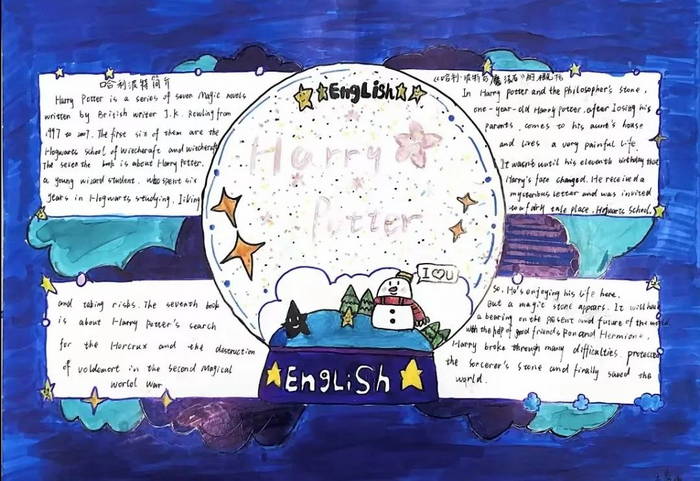 哈利波特简介
Harry Potter is a series of seven Magic novels
written by British writer J.K. Rowling from
1997 to 2007. The first six of them are the
Hogwarts school of Witchcraft and witchcraft
The seven the book is about Harry Potter,
a young wizard student, who spent six
Years in Hogwarts studying, living
and taking risks. The seventh book
is about Harry Potter's search
for the Horcrux and the destruction
of voldemort in the second Magical
world War
★ ★EngLish★ ★
Harry
Potter
I ♡ U
★ EngLiSh ★
《哈利·波特与魔法石》的概括
In Harry Potter and the Philosopher's stone,
one-year-old Harry Potter, after losing his
parents, comes to his aunt's house
and lives a very painful life.
It wasn't until his eleventh birthday that
Harry's face changed. He received a
mysterious letter and was invited
to a fairy tale place, Hogwarts School.
So. He's enjoying his life here,
But a magic stone appears. It will have
a bearing on the present and future of the world.
with the help of good friends Ron and Hermione,
Harry broke through many difficulties, protected
the sorcerer's stone and finally saved the
world.